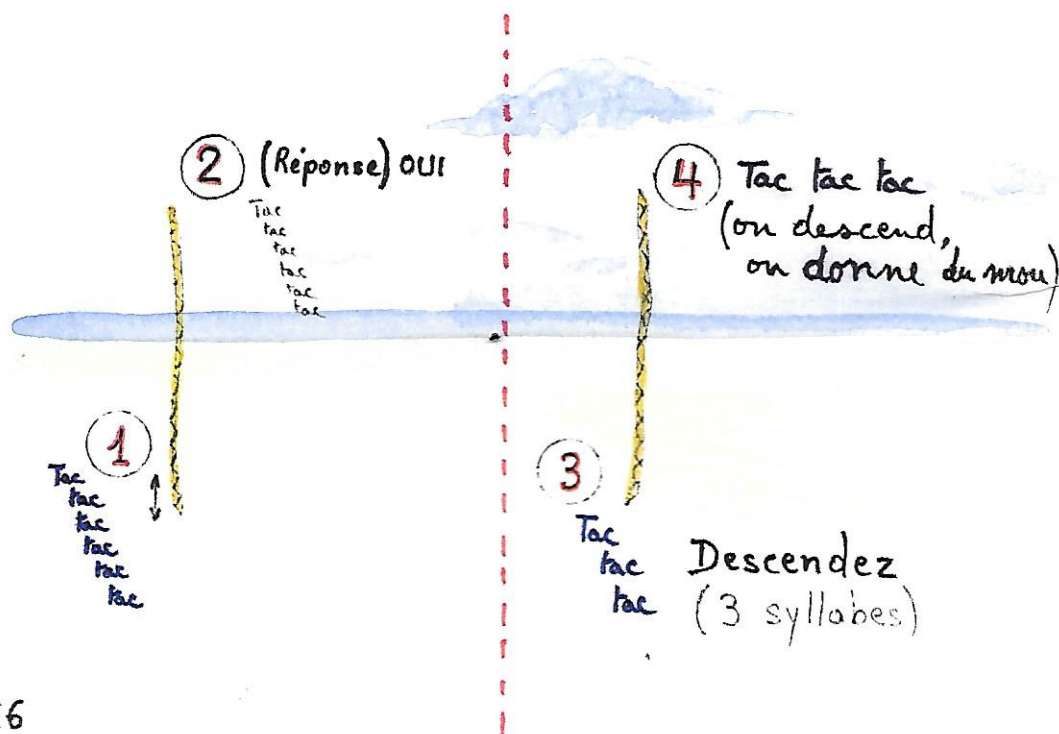 2 (Réponse) OUI
Tac
tac
tac
tac
tac
tac
1
Tac
tac
tac
tac
tac
tac
4 Tac tac tac
(on descend,
on donne du mou)
3
Tac
tac
tac
Descendez
(3 syllabes)